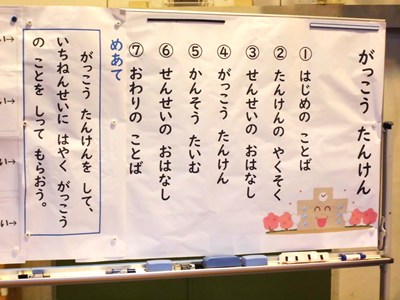 がっこう たんけん
① はじめの ことば
② たんけんの やくそく
③ せんせいの おはなし
④ がっこう たんけん
⑤ かんそう たいむ
⑥ せんせいの おはなし
⑦ おわりの ことば
めあて
がっこう たんけんを して、
いちねんせいに はやく がっこう
の ことを しって もらおう。